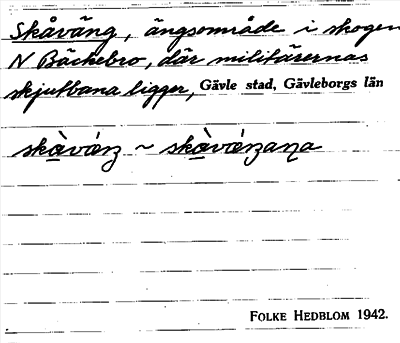 Skåväng, ängsområde i skogen
N Bäckebro, där militärernas
skjutbana ligger, Gävle stad, Gävleborgs län
~
FOLKE HEDBLOM 1942.